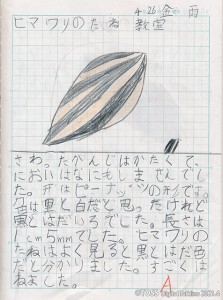 4/26 金 雨
ヒマワリのたね 教室
さわったかんじはかたくて、
においはなにもしませんでし
た。形はピーナッツの形です。
色は黒と白だと思ったけれど
黒とはだいろでした。長さは
1cm5mmでした。ヒマワリの
たねはよく見ると黒とはだ色
だと分かりました。すごくは
ねました。
A